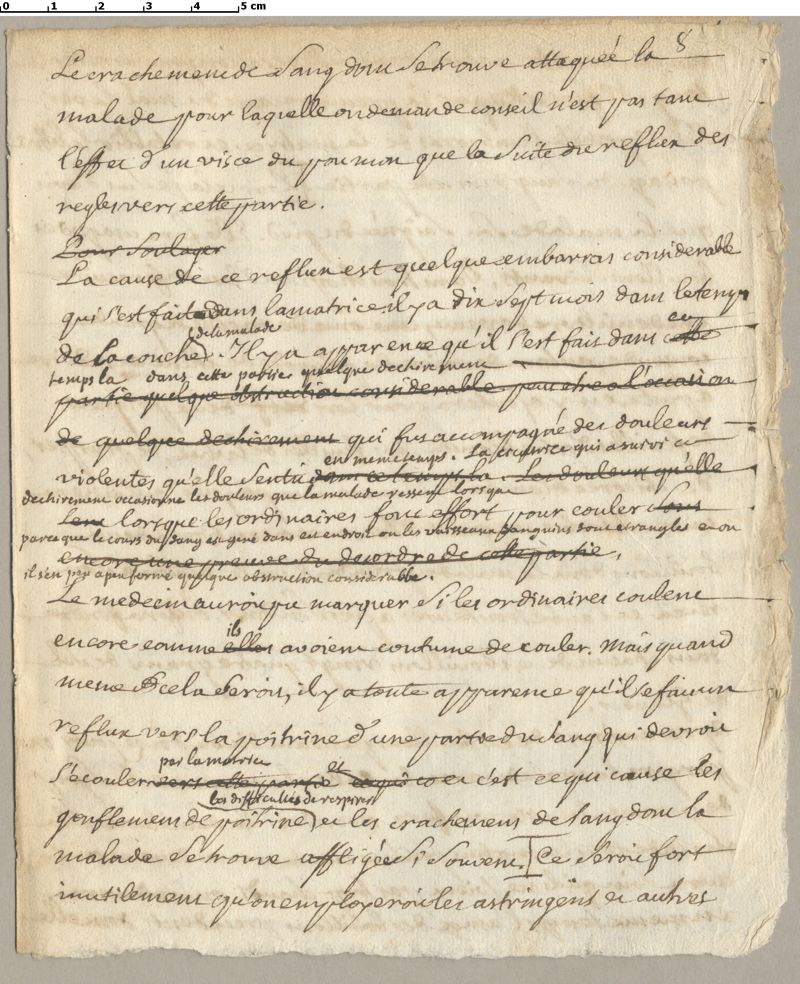 0 1 2 3 4 5 cm
8
Le crachement de sang dont se trouve attaqueé la
malade pour laquelle on demande conseil n'est pas tant
l'effet d'un visce du poumon que la suite du reflux des
regles vers cette partie.
Pour soulager
La cause de ce reflux est quelque embarras considerable
qui s'est fait dans la matrice il y a dix sept mois dans le temps
de la malade
de la couche. Il y a apparence qu'il s'est fait dans cette
ce
temps la dans cette partie quelque dechirement
partie quelque obstruction considerable peut etre a l'occasion
de quelque dechirement qui fut accompagné des douleurs
en meme temps. La cicatrice qui a suivi ce
violentes qu'elle sentit dans ce temps la. Les douleurs qu'elle
dechirement occasionne les douleurs que la malade ressent lorsque
lorsque les ordinaires font effort pour couler sont
parce que le cours du sang est gené dans cet endroit ou les vaisseaux sanguins sont etranglés et ou
encore une preuve du desordre de cette partie,
il s'en peu a peu formé quelque obstruction considerabbe.
Le medecin auroit pu marquer si les ordinaires coulent
ils
encore comme elles avoient coutume de couler. Mais quand
meme cela seroit, il y a toute apparence qu'il se fait un
reflux vers la poitrine d'une partie du sang qui devroit
par la matrice
s'ecouler vers cette partie et c'est ce qui cause les
les difficultés de respirer
gonflemens de poitrine et les crachemens de sang dont la
malade se trouve affligée si souvent. Ce seroit fort
inutilement qu'on employeroit les astringens et autres